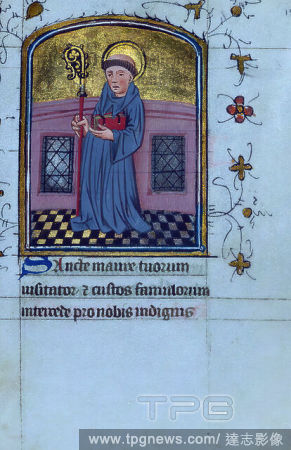 Sancte maure tuorum
visitator ⁊ custos famulorum
intercede pro nobis indignis
TPG
www.tpgnews.com/ 達志影像